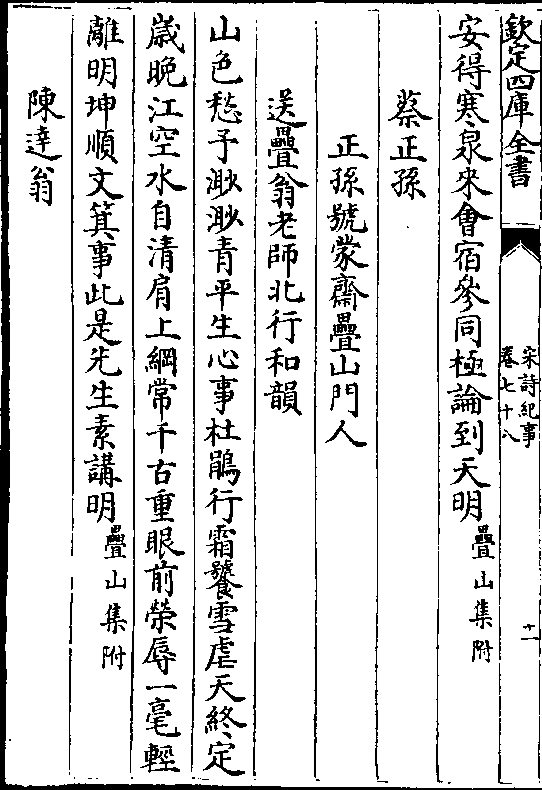 欽定四庫全書
宋詩紀事
卷七十八
十一
安得寒泉來會宿參同極論到天明疊山集附
蔡正孫
正孫號蒙齋疊山門人
送疊翁老師北行和韻
山色愁予渺渺青平生心事杜鵑行霜饕雪虐天終定
歲晚江空水自清肩上綱常千古重眼前榮辱一毫輕
離明坤順文箕事此是先生素講明疊山集附
陳達翁